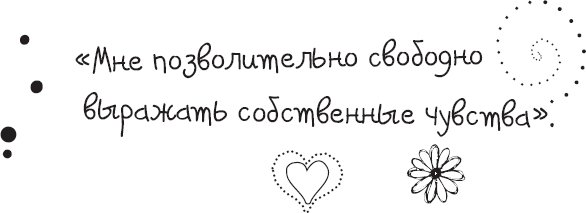 «Мне позволительно свободно
выражать собственные чувства».